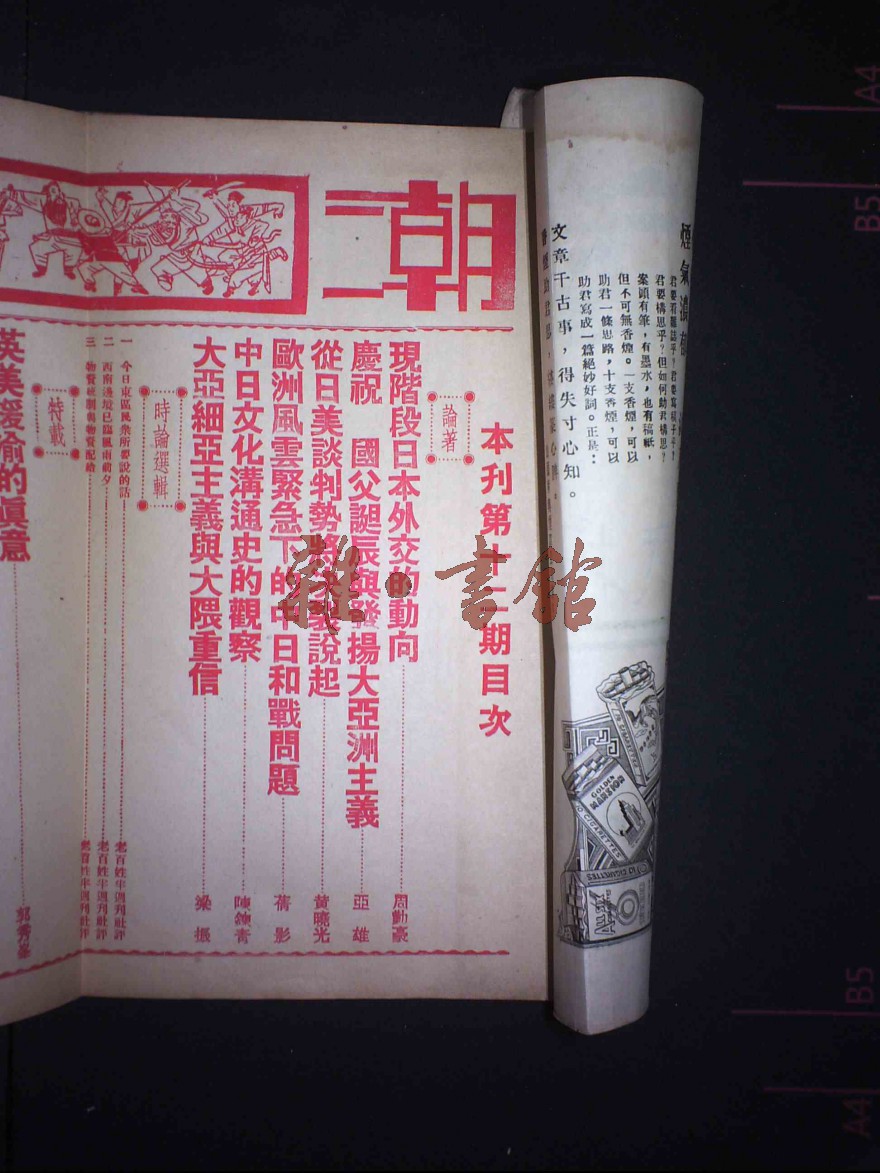 煙氣濃
君要構思乎？但如何助君構思？
案頭有筆，有墨水，也有稿紙，
但不可無香煙。一支香煙，可以
助君一條思路，十支香煙，可以
助君寫成一篇絕妙好詞。正是：
文章千古事，得失寸心知。
GOLDEN
CIGARETTES
CIGARETTES
朝
本刊第十二期目次
論著
現階段日本外交的動向 周勤豪
慶祝 國父誕辰與發揚大亞洲主義 亞雄
從日美談判勢將決裂說起 黃曉光
歐洲風雲緊急下的中日和戰問題 蒨影
中日文化溝通史的觀察 陳鍊青
大亞細亞主義與大隈重信 梁振
時論選輯
一 今日東區民衆所都說的話 老百姓半週刊社評
二 西南邊境已臨風雨前夕 老百姓半週刊社評
三 物資統制與物資配給 老百姓半週刊社評
特載
英美援渝的真意 郭秀峯
雜·書館
A4
B5
B5
A4